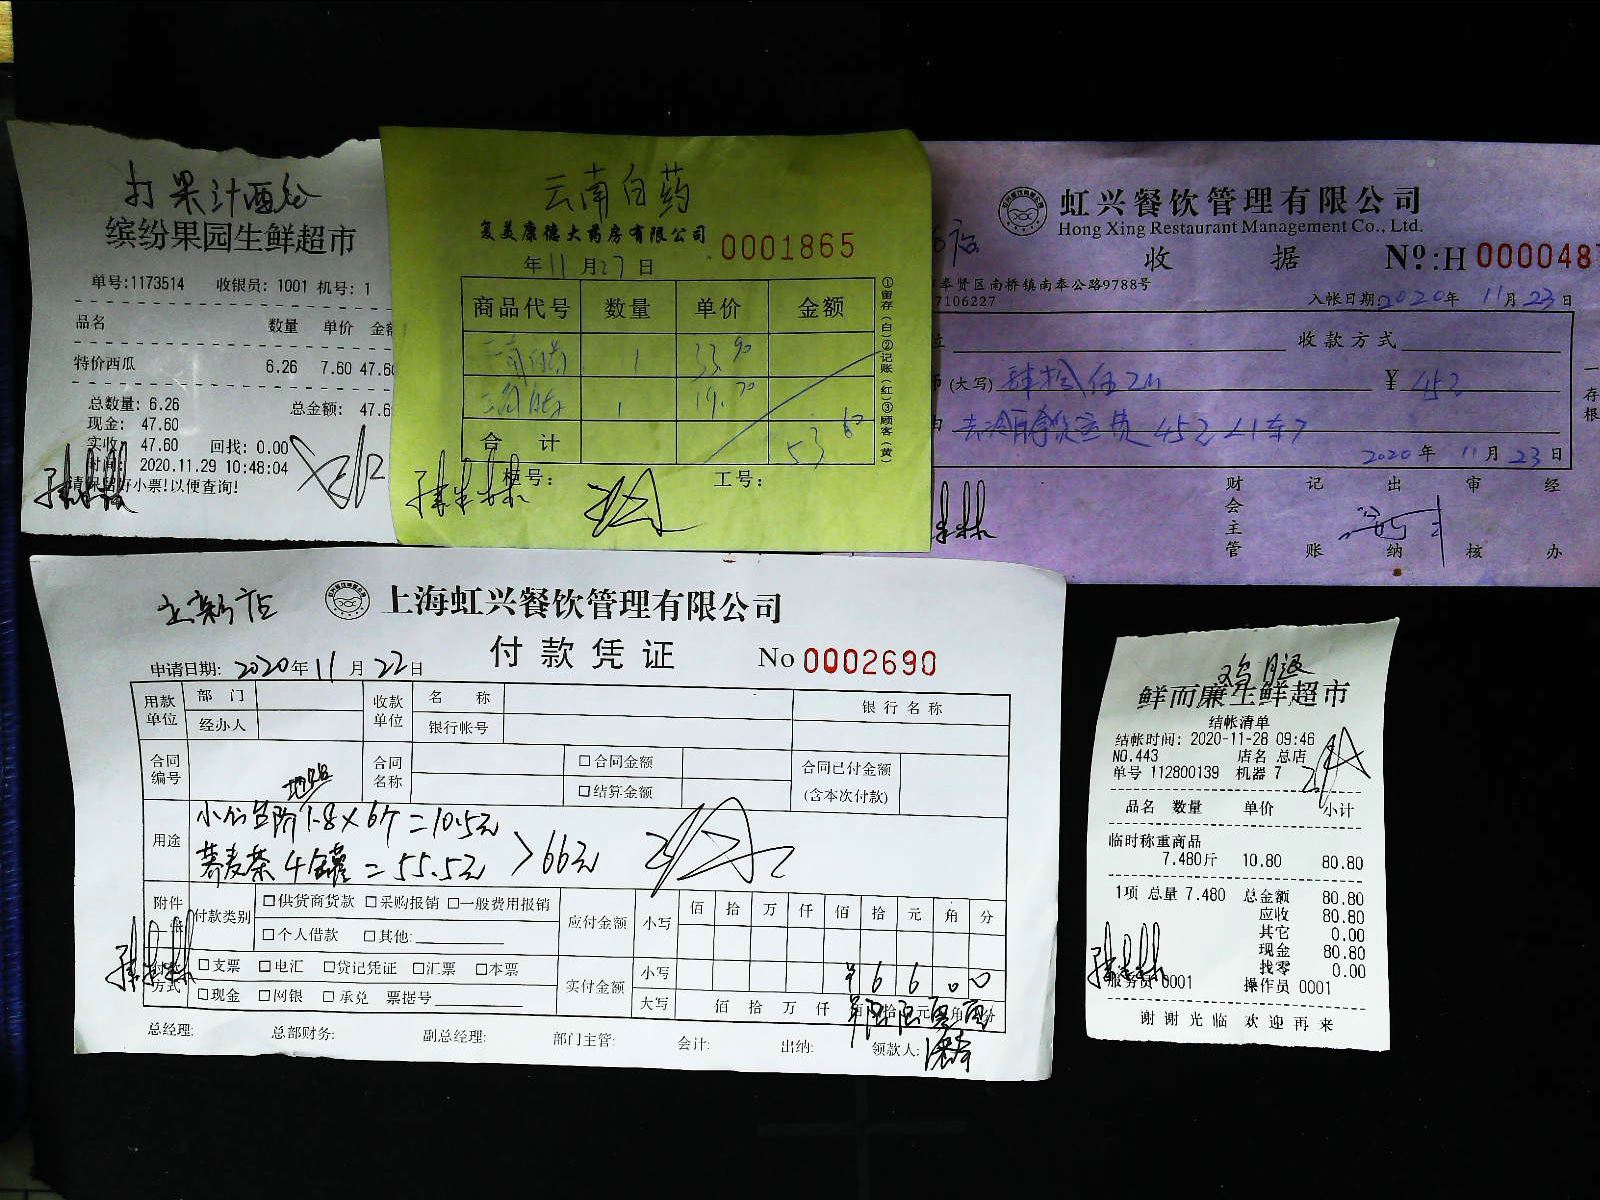 打果汁西瓜
缤纷果园生鲜超市
单号:1173514 收银员: 1001 机号: 1
品名 数量 单价 金额
特价西瓜 6.26 7.60 47.60
总数量: 6.26 总金额: 47.6
现金: 47.60
实收: 47.60 回找: 0.00
时间: 2020.11.29 10:48:04
请保留好小票!以便查询!
云南白药
复美康德大药房有限公司 0001865
年11月27日
商品代号 数量 单价 金额
云南白药 1 33.90
1 19.70
合计 53.60
柜号: 工号:
①留存(白)②记账(红)③顾客(黄)
虹兴餐饮管理有限公司
Hong Xing Restaurant Management Co., Ltd.
收据 No:H 0000487
奉贤区南桥镇南奉公路9788号
7106227 入帐日期:2020年11月23日
收款方式
(大写) 肆拾伍元 ¥ 45元
2020年11月23日
财会主管 记账 出纳 审核 经办
一存根
上海虹兴餐饮管理有限公司
付款凭证 No 0002690
申请日期: 2020年11月22日
用款单位 部门 收款单位 名称 银行名称
经办人 银行帐号
合同编号 合同名称 □合同金额 合同已付金额
□结算金额 (含本次付款)
用途 1.8×6个=10.5元
荞麦茶4罐=55.5元 >66元
附件 张 付款类别 □供货商货款 □采购报销 □一般费用报销 应付金额 小写 佰 拾 万 仟 佰 拾 元 角 分
□个人借款 □其他:
付款方式 □支票 □电汇 □贷记凭证 □汇票 □本票 实付金额 小写 ¥66.00
□现金 □网银 □承兑 票据号 大写 佰 拾 万 仟 佰 拾 元 角 分
总经理: 总部财务: 副总经理: 部门主管: 会计: 出纳: 领款人:
鸡腿
鲜而廉生鲜超市
结帐清单
结帐时间: 2020-11-28 09:46
NO.443 店名 总店
单号 112800139 机器 7
品名 数量 单价 小计
临时称重商品
7.480斤 10.80 80.80
1项 总量 7.480 总金额 80.80
应收 80.80
其它 0.00
现金 80.80
找零 0.00
服务员 0001 操作员 0001
谢谢光临 欢迎再来